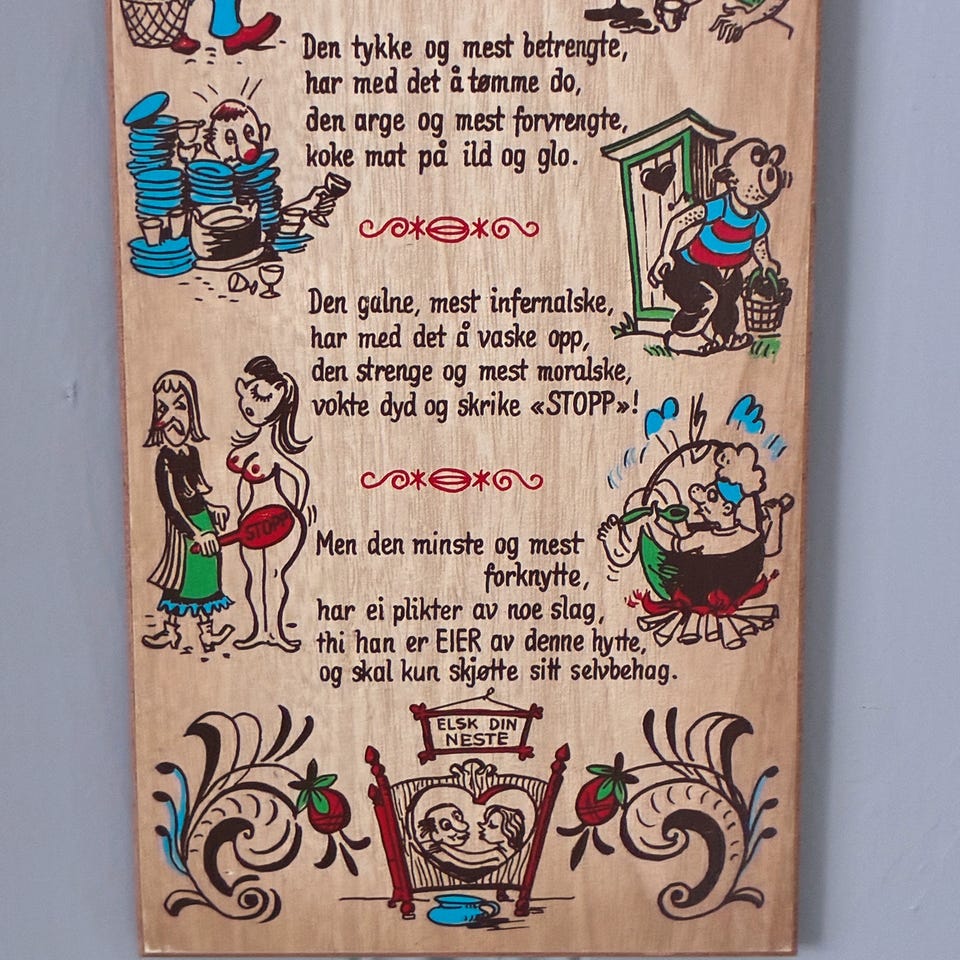 Den tykke og mest betrengte,
har med det å tømme do,
den arge og mest forvrengte,
koke mat på ild og glo.
Den galne, mest infernalske,
har med det å vaske opp,
den strenge og mest moralske,
vokte dyd og skrike «STOPP»!
STOPP
Men den minste og mest
forknytte,
har ei plikter av noe slag,
thi han er EIER av denne hytte,
og skal kun skjøtte sitt selvbehag.
ELSK DIN
NESTE